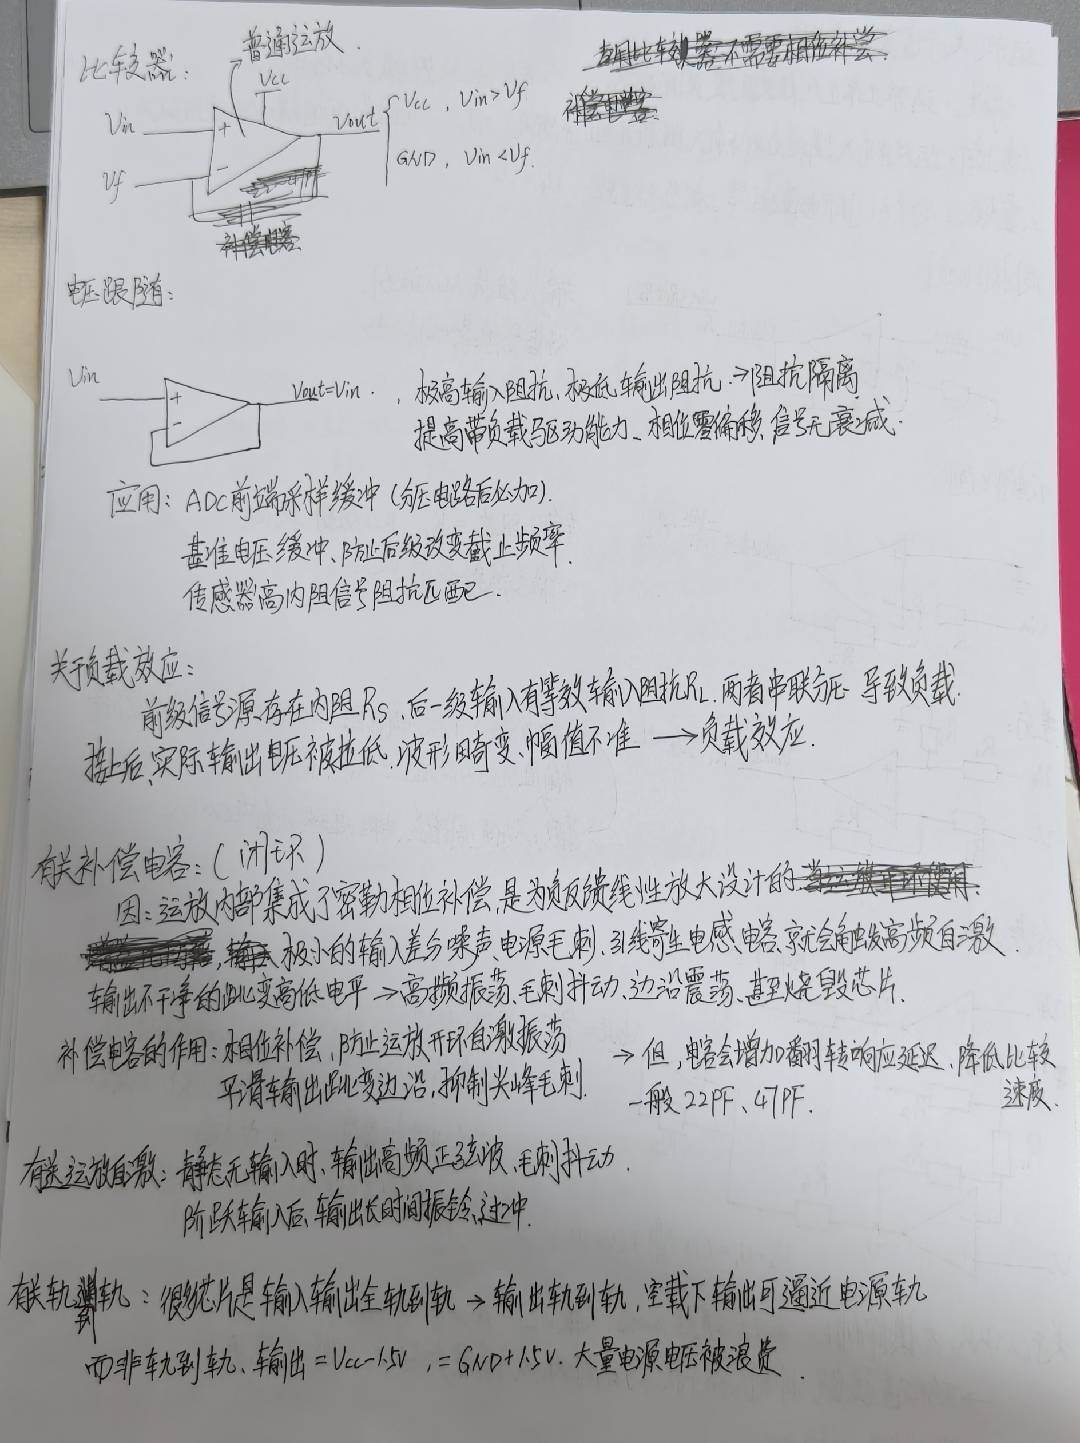 普通运放.
比较器:
专用比较器不需要相位补偿.
Vcc
Vin + Vout { Vcc, Vin>Vf
补偿电容
Vf - GND, Vin<Vf.
补偿电容
电压跟随:
Vin + - Vout=Vin. , 极高输入阻抗、极低输出阻抗. →阻抗隔离
提高带负载驱动能力、相位零偏移、信号无衰减.
应用: ADC前端采样缓冲 (分压电路后必加).
基准电压缓冲、防止后级改变截止频率.
传感器高内阻信号阻抗匹配.
关于负载效应:
前级信号源存在内阻Rs、后一级输入有等效输入阻抗RL. 两者串联分压 导致负载
接上后、实际输出电压被拉低、波形畸变、幅值不准 →负载效应.
有关补偿电容: (闭环)
因: 运放内部集成了密勒相位补偿, 是为负反馈线性放大设计的
, 输入极小的输入差分噪声、电源毛刺、引线寄生电感、电容、就会触发高频自激
输出不干净的跳变高低电平 →高频振荡、毛刺抖动、边沿震荡、甚至烧毁芯片.
补偿电容的作用: 相位补偿、防止运放开环自激振荡 → 但, 电容会增加翻转响应延迟、降低比较
平滑输出跳变边沿, 抑制尖峰毛刺. 一般 22PF、47PF. 速度.
有关运放自激: 静态无输入时、输出高频正弦波、毛刺抖动.
阶跃输入后、输出长时间振铃、过冲.
有关轨到轨: 很多芯片是输入输出全轨到轨 → 输出轨到轨, 空载下输出可逼近电源轨
而非轨到轨、输出=Vcc-1.5V, =GND+1.5V. 大量电源电压被浪费.